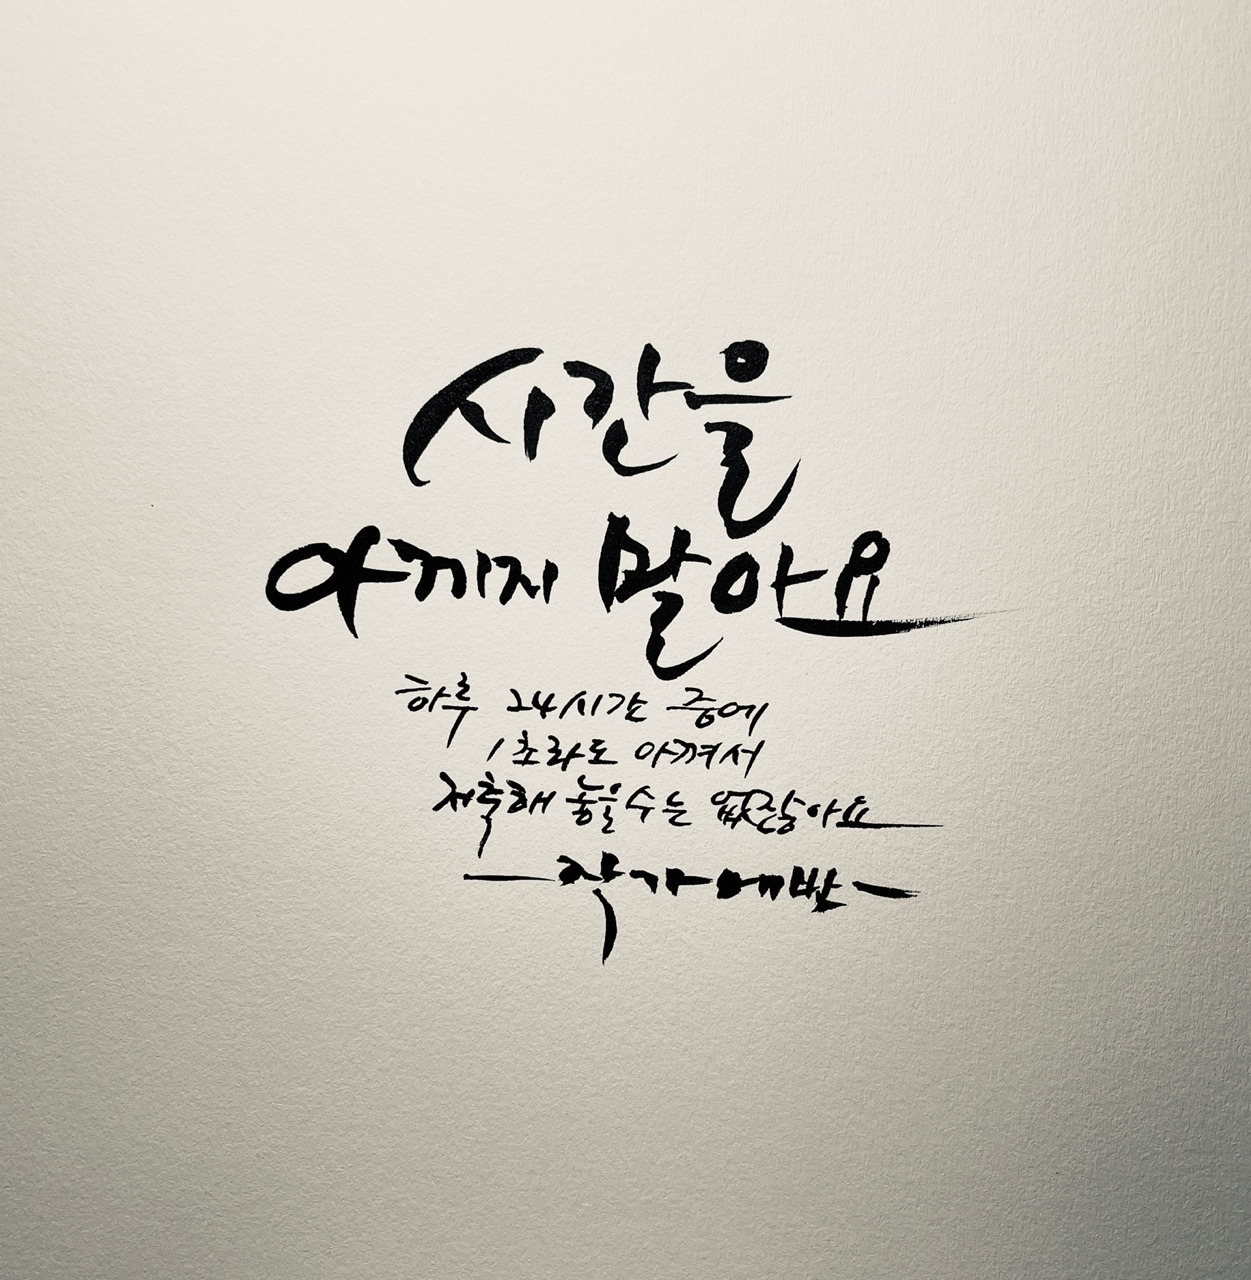 시간을
아끼지 말아요
하루 24시간 중에
1초라도 아껴서
저축해 놓을 수는 없잖아요
작가 에반